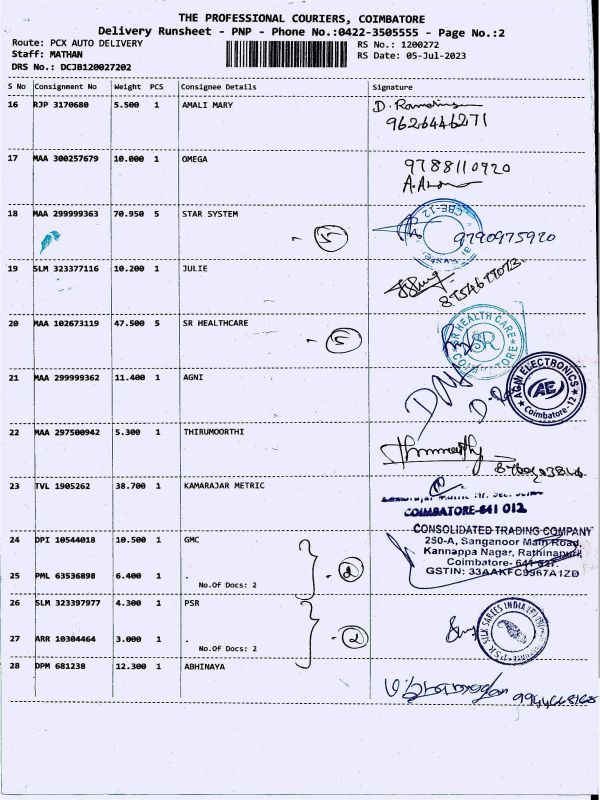 THE PROFESSIONAL COURIERS, COIMBATORE
Delivery Runsheet - PNP - Phone No.:0422-3505555 - Page No.:2
Route: PCX AUTO DELIVERY RS No.: 1200272
Staff: MATHAN RS Date: 05-Jul-2023
DRS No.: DCJB120027202
S No Consignment No Weight PCS Consignee Details Signature
16 RJP 3170680 5.500 1 AMALI MARY
9626446271
17 MAA 300257679 10.000 1 OMEGA 9788110920
18 MAA 299999363 70.950 5 STAR SYSTEM - 5 CBE-12 9790975920
19 SLM 323377116 10.200 1 JULIE
20 MAA 102673119 47.500 5 SR HEALTHCARE - 5 SR HEALTH CARE SR COIMBATORE
21 MAA 299999362 11.400 1 AGNI AGNI ELECTRONICS AE Coimbatore-12
22 MAA 297500942 5.300 1 THIRUMOORTHI
23 TVL 1905262 38.700 1 KAMARAJAR METRIC
COIMBATORE-641 012
24 DPI 10544018 10.500 1 GMC CONSOLIDATED TRADING COMPANY
250-A, Sanganoor Main Road,
Kannappa Nagar, Rathinapuri,
Coimbatore- 641 027.
25 PML 63536898 6.400 1 . - 2 GSTIN: 33AAKFC9967A1ZD
No.Of Docs: 2
26 SLM 323397977 4.300 1 PSR SILK SAREES INDIA (P)
27 ARR 10304464 3.000 1 . - 2
No.Of Docs: 2
28 DPM 681238 12.300 1 ABHINAYA